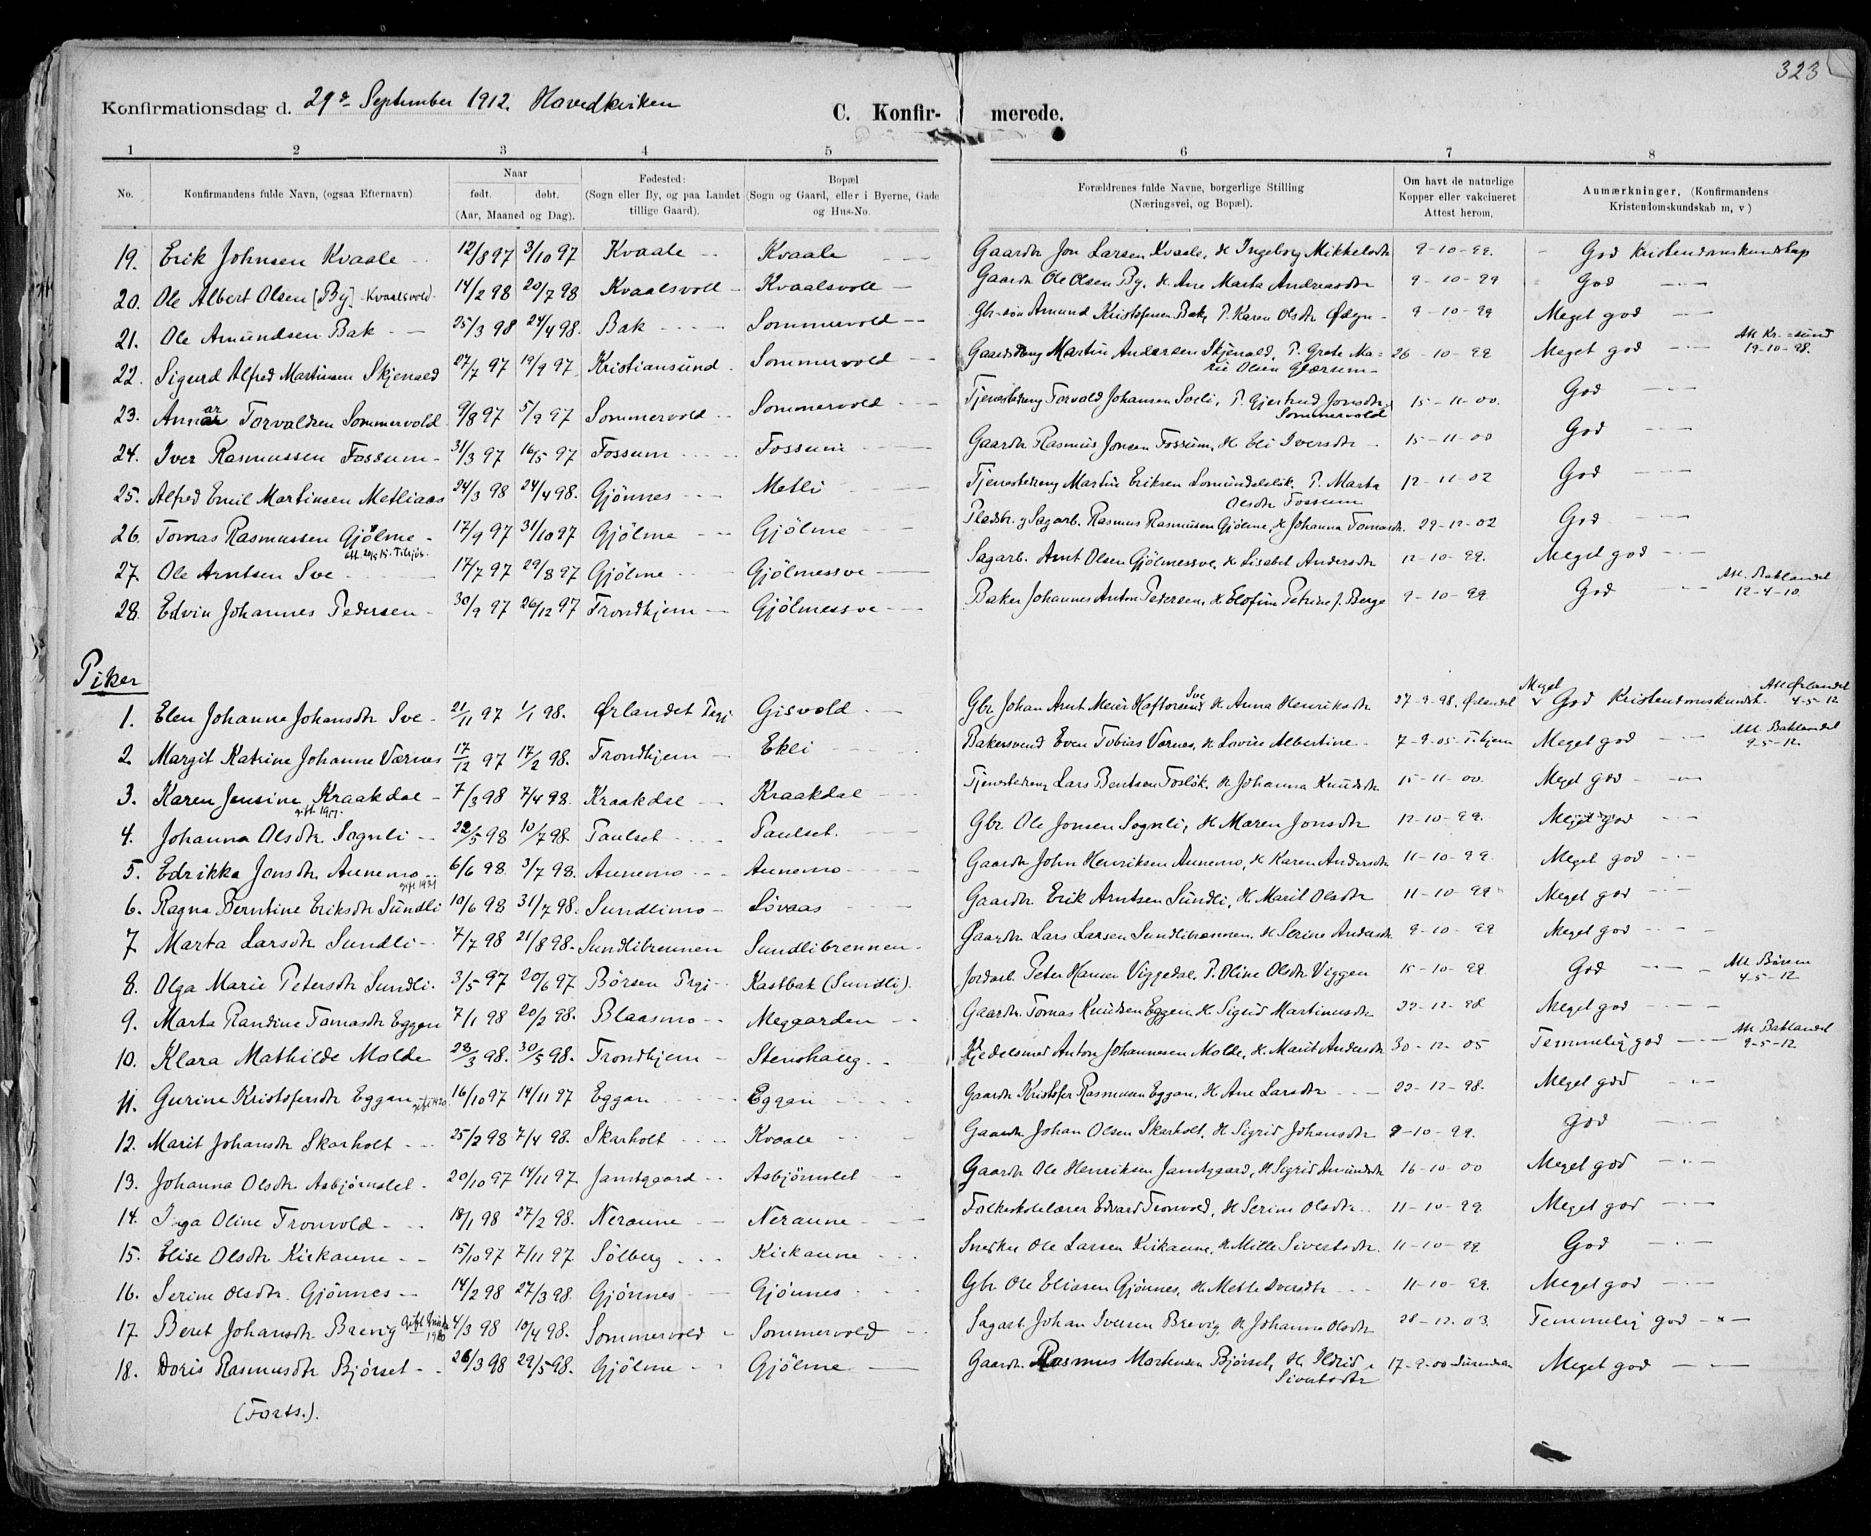 323
Konfirmationsdag d. 29de September 1912. Hovedkirken C. Konfir- merede.
1 2 3 4 5 6 7 8
No. Konfirmandens fulde Navn, (ogsaa Efternavn) Naar født. døbt. (Aar, Maaned og Dag). Fødested: (Sogn eller By, og paa Landet tillige Gaard). Bopæl (Sogn og Gaard, eller i Byerne, Gade og Hus-No. Forældrenes fulde Navne, borgerlige Stilling (Næringsvei, og Bopæl). Om havt de naturlige Kopper eller vakcineret Attest herom. Anmærkninger, (Konfirmandens Kristendomskundskab m, v)
19. Erik Johnsen Kvaale 12/8 97 3/10 97 Kvaale Kvaale Gaardbr Jon Larsen Kvaale, H Ingeborg Mikkelsdtr 9-10-99. God Kristendomskundskap
20. Ole Albert Olsen [By] Kvaalsvold 14/2 98 20/7 98 Kvaalsvoll Kvaalsvoll Gaardbr Ole Olsen By, H. Ane Marta Andreasdtr 9-10-99 God
21. Ole Amundsen Bak 25/3 98 24/4 98. Bak Sommervold Gbr-søn Amund Kristofersen Bak, P. Karen Olsdtr Ødegn 9-10-99 Meget god
22. Sigurd Alfred Martinsen Skjenald 27/7 97 19/9 97 Kristiansund Sommervold Gaardsdreng Martin Andersen Skjenald, P. Grete Ma= rie Olsen Glærum 26-10-99 Meget god Att. Kr.=sund 19-10-98.
23. Annar Torvaldsen Sommervold 9/8 97 5/9 97 Sommervold Sommervold Tjenestedreng Torvald Johansen Soeli, P. Gjertrud Jonsdtr Sommervold 15-11-00. God
24. Iver Rasmussen Fossum 31/3 97 16/5 97 Fossum Fossum Gaardbr Rasmus Jonsen Fossum, H Eli Iversdtr 15-11-00 God
25. Alfred Emil Martinsen Metliaas 24/3 98 24/4 98. Gjønnes Metli Tjenestedreng Martin Eriksen Somundslik. P. Marta Olsdtr Fossum 12-11-02 God
26. Tomas Rasmussen Gjølme 17/9 97 31/10 97 Gjølme Gjølme Pladsbr. og Sagarb. Rasmus Rasmussen Gjølme, H Johanna Tomasdtr. 29-12-02 God
27. Ole Arntsen Sve 17/7 97 29/8 97 Gjølme Gjølmessve Sagarb. Arnt Olsen Gjølmessve, H Lisabet Andersdtr 12-10-99. Meget god
28. Edvin Johannes Pedersen 30/9 97 26/12 97 Trondhjem Gjølmessve Baker Johannes Anton Petersen, H Elofine Petrine f. Berge 9-10-99 God Att. Baklandet 12-4-10.
Piker
1. Elen Johanne Johansdtr Sve 21/11 97 1/1 98. Ørlandet Prgj Gisvold Gbr Johan Arnt Meier Haftorsen Sve, H Anna Henriksdtr 27-9-98, Ørlandet Meget God Kristendomskundsk. Att Ørlandet 4-5-12
2 Margit Katrine Johanne Værnes 17/12 97 17/2 98. Trondhjem Ekli Bakersvend Even Tobias Værnes, H Lovise Albertine 7-9-05 T.hjem Meget god Att. Baklandet 9-5-12.
3. Karen Jensine Kraakdal gift 1951. 7/3 98 7/4 98. Kraakdal Kraakdal Tjenestedreng Lars Bentsen Fosløk, H Johanna Knudsdtr 15-11-00. Meget god
4. Johanna Olsdtr Sognli 22/5 98 10/7 98. Paulset Paulset. Gbr Ole Jonsen Sognli, H Maren Jonsdtr 12-10-99. Meget god
5. Edrikka Jonsdtr Aunemo gift 1921 6/6 98 3/7 98. Aunemo Aunemo Gaardbr John Henriksen Aunemo, H Karen Andersdtr 11-10-99. Meget god
6. Ragna Berntine Eriksdtr Sundli 10/6 98 31/7 98. Sundlimo Løvaas Gaardbr Erik Arntsen Sundli, H. Marit Olsdtr 11-10-99 Meget god
7 Marta Larsdtr Sundli 7/7 98 21/8 98. Sundlibrennen Sundlibrennen Gaardbr Lars Larsen Sundlibrennen, H Serine Andersdtr. 9-10-99 Meget god
8. Olga Marie Petersdtr Sundli. 3/5 97 20/6 97. Børsen Prgj. Kastbak (Sundli). Jordarb. Peter Hansen Viggedal, P. Oline Olsdtr Viggen 15-10-99. God Att Børsen 4-5-12
9. Marta Randine Tomasdtr Eggen 7/1 98 20/2 98. Blaasmo Megaarden Gaardbr. Tomas Knudsen Eggen H Sigrid Martinusdtr 22-12-98 Meget god
10. Klara Mathilde Molde 28/3 98. 30/5 98. Trondhjem Stenshaug Kjedelsmed Anton Johannesen Molde, H. Marit Andersdtr 30-12-05 Temmelig god Att Baklandet 9-5-12
11. Gurine Kristofersdtr Eggan gift 1920. 16/10 97 14/11 97 Eggan Eggan Gaardbr Kristofer Rasmussen Eggan, H. Ane Larsdtr 22-12-98. Meget god
12. Marit Johansdtr Skarholt 25/2 98 7/4 98. Skarholt Kvaale Gaardbr Johan Olsen Skarholt, H Sigrid Johansdtr 9-10-99. God
13. Johanna Olsdtr Asbjørnslet 20/10 97 14/11 97 Jamtgaard Asbjørnslet Gaardbr Ole Henriksen Jamtgaard, H Sigrid Amundsdtr 16-10-00 Meget god
14. Inga Oline Tronvold 18/1 98 27/2 98. Neraune Neraune Folkeskolelærer Edvard Tronvold, H Serine Olsdtr 11-10-99. Meget god
15. Elise Olsdtr Kirkaune 15/10 97 7/11 97. Sølberg Kirkaune Snedker Ole Larsen Kirkaune, H Mille Sivertsdtr. 11-10-99. God
16. Serine Olsdtr. Gjønnes 14/2 98 27/3 98. Gjønnes Gjønnes Gbr Ole Eliasen Gjønnes, H Mette Iversdtr 11-10-99. Meget god
17. Beret Johansdtr Brevig 4/3 98 10/4 98. Sommervold Sommervold Sagarb. Johan Iversen Brevig, H Johanna Olsdtr 28-12-03. Temmelig god
18. Doris Rasmusdtr Bjørset 26/3 98 29/5 98. Gjølme Gjølme Gaardbr. Rasmus Mortensen Bjørset, H. Ildrid Sivertsdtr 17-9-00 Surendalen Meget god
(Forts.).